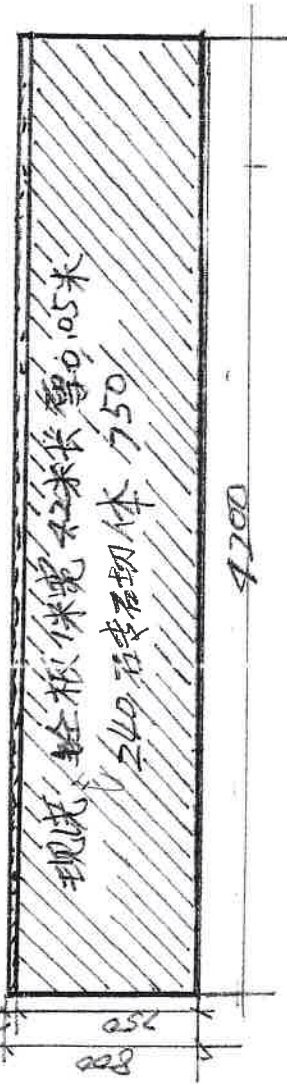 现浇砼板 4.2米长 0.05米
240砖砌体 750
4200
750
800